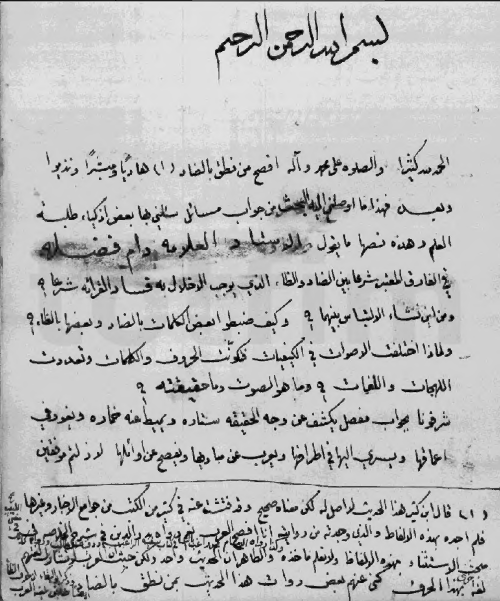 بسم الله الرحمن الرحيم
الحمد لله كثيرا والصلوه على محمد وآله افصح من نطق بالضاد (١) هاديًا ومبشرًا ونذيرا
وبعد فهذا ما اوصلني اليه البحث من جواب مسائل سئلني بها بعض أذكياء طلبة
العلم وهذه نصها ما يقول الاستاد العلامه دام فضله
في الفارق المعتبر شرعا بين الضاد والظاء الذي يوجب الاخلال به فساد القرائه شرعا ؟
ومن اين نشاء الالتباس بينهما ؟ وكيف ضبطوا بعض الكلمات بالضاد وبعضها بالظاء ؟
ولماذا اختلفت الاصوات في الكيفيات فتكونت الحروف والكلمات وتعددت
اللهجات واللغات ؟ وما هو الصوت وما حقيقته ؟
شرفونا بجواب مفصل يكشف عن وجه الحقيقه ستاره ويميط عنه خماره ويغور في
اعماقها ويسري اليها في اطرافها ويعرب عن مباديها ويفصح عن اوائلها لا زلتم موفقين
(١) قال ابن كثير هذا الحديث لا اصل له لكن معناه صحيح وقد فتشت عنه في كثير من الكتب من جوامع الاخبار وغيرها
فلم اجده بهذه الالفاظ والذي وجدته من رواياته انا افصح العرب
بهذه الالفاظ ولا نعلم ماخذه والظاهر ان الحديث واحد ولكن حيث
لغة بهذا الحرف كنى عنهم بعض روات هذا الحديث بمن نطق بالضاد